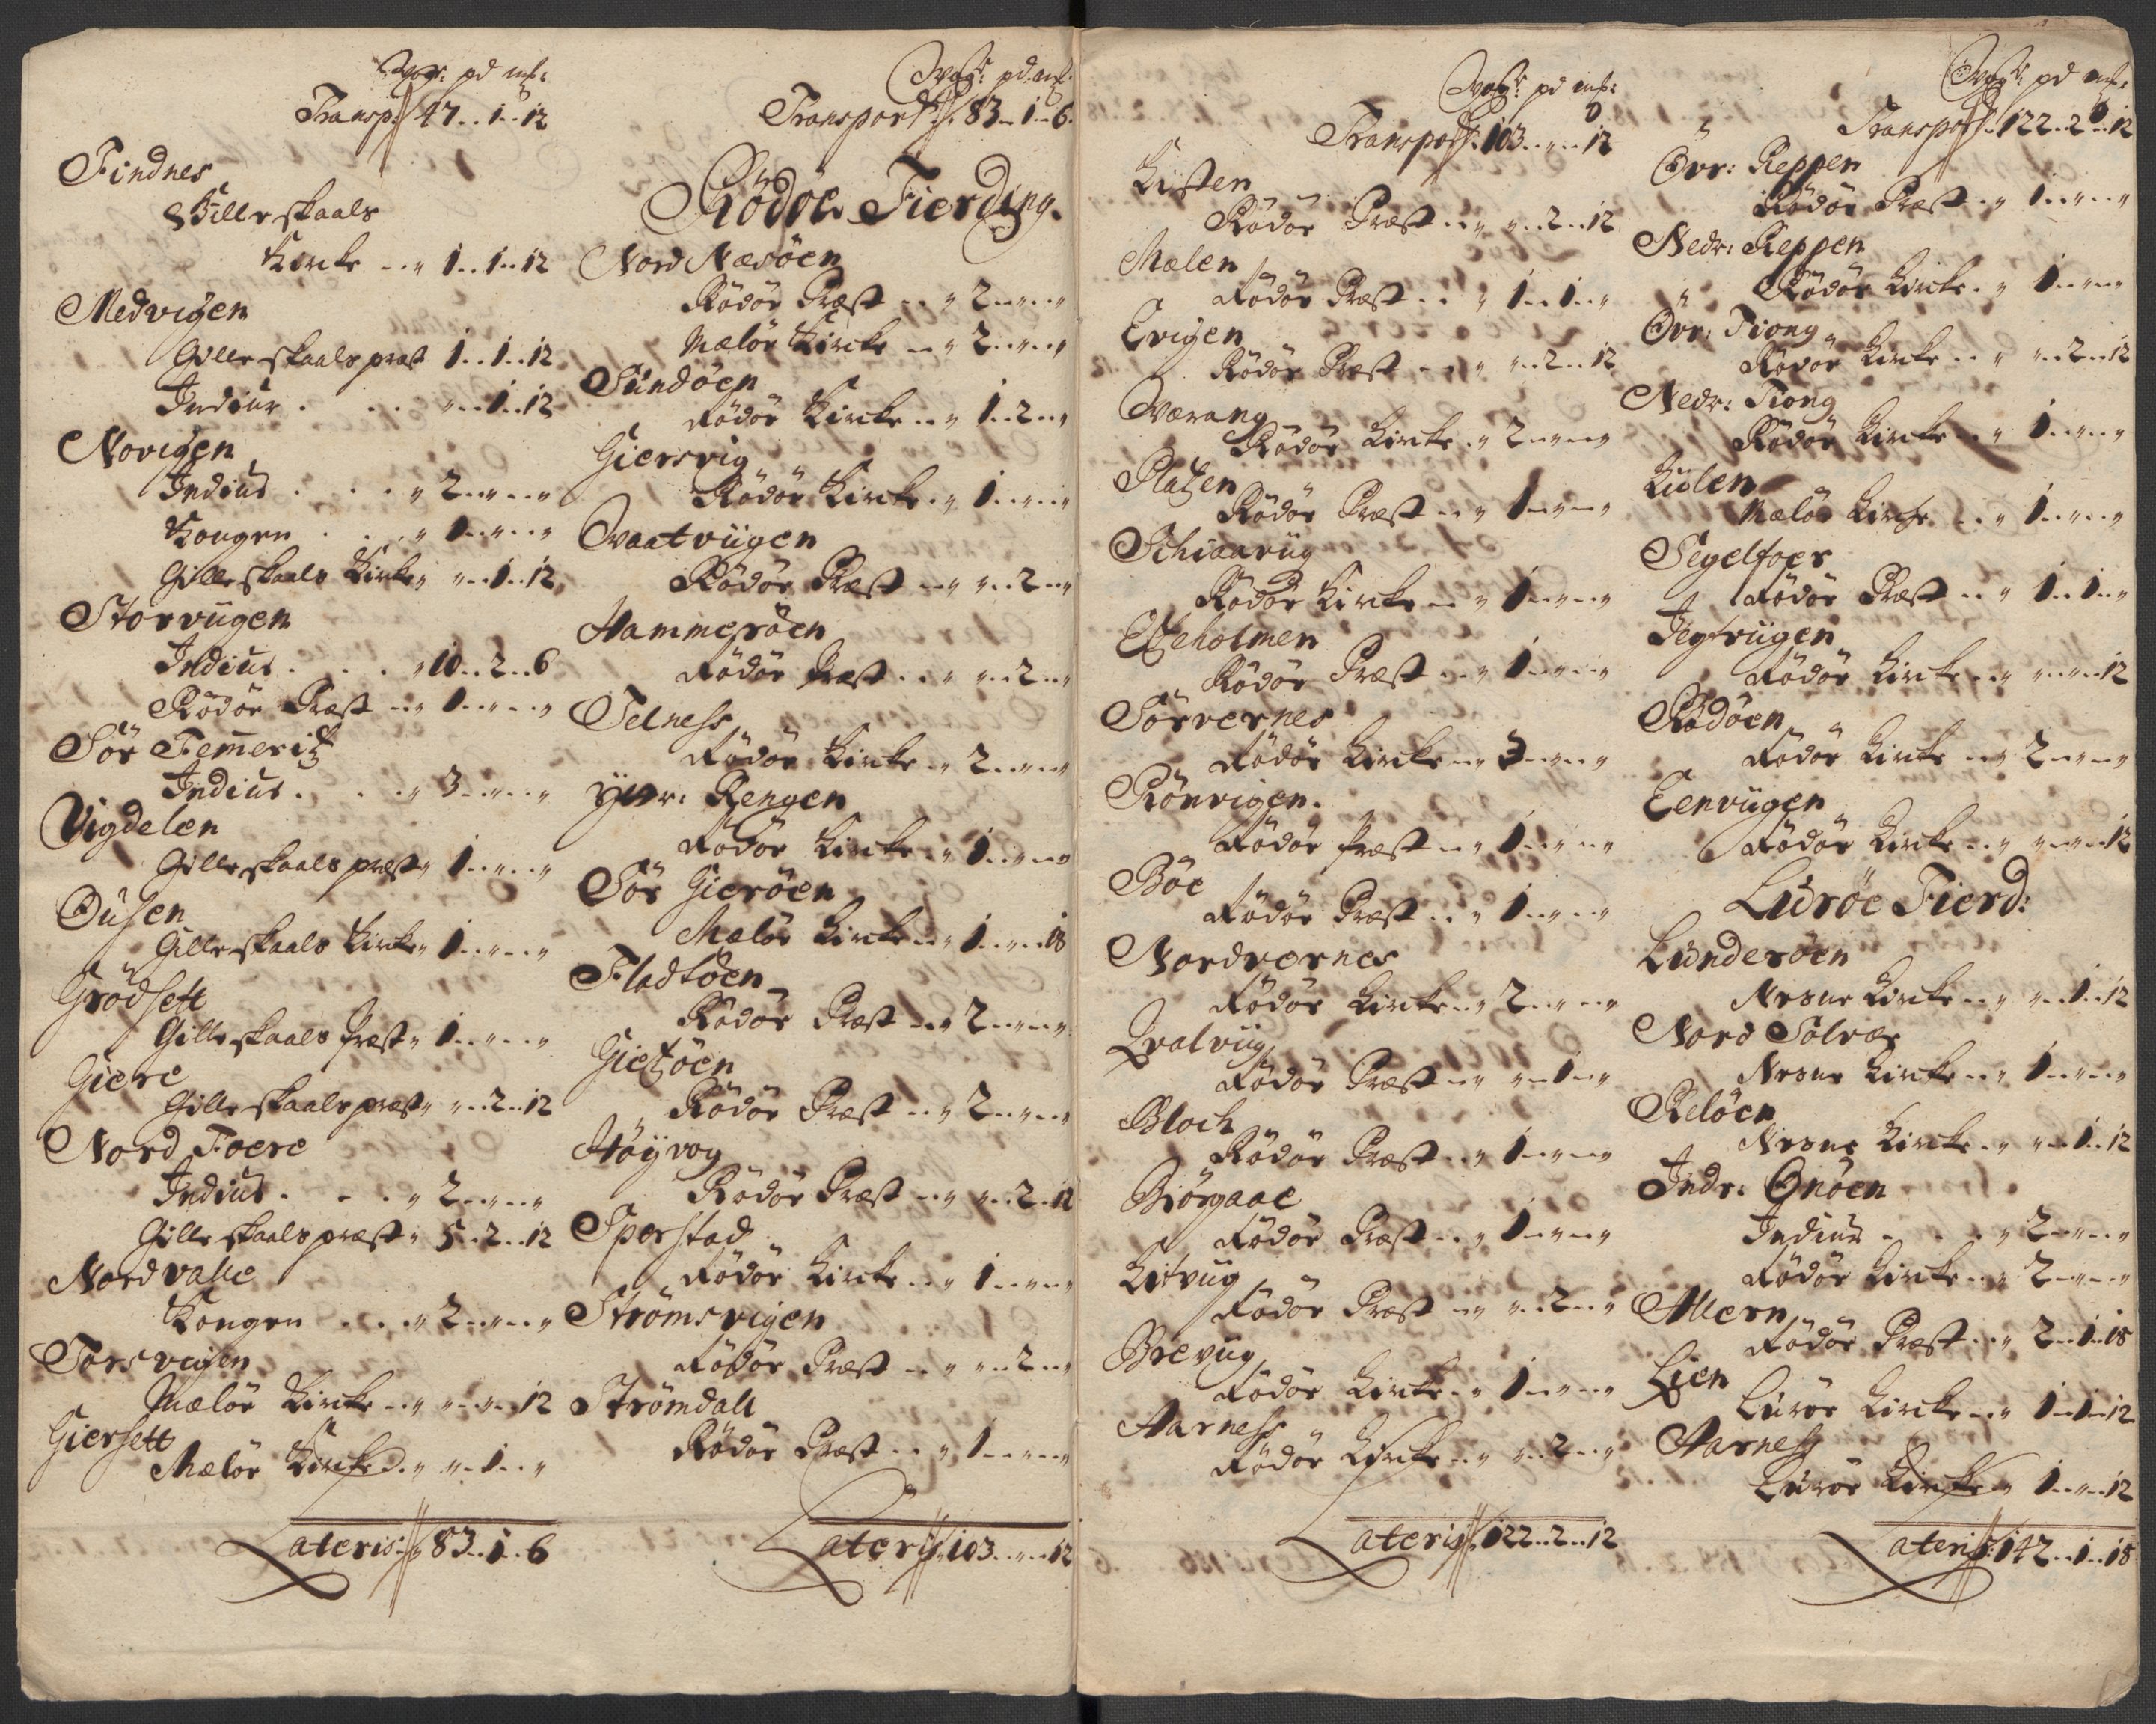 Wog: pd mk:
Transp: 47..1..12
Findnes
Gilleskaals
Kircke ..„ 1..1..12
Medvigen
Gilleskaals præst 1..1..12
Indiur . . . „..1..12
Novigen
Indiur . . . „ 2..„..„
Kongen . . . „ 1..„..„
Gilleskaals Kircke „..1..12
Storvügen
Indiur . . . „ 10..2..6
Rödöe Præst ..„ 1..„..„
Sör Femeris
Indiur . . . „ 3..„..„
Vigdelen
Gilleskaals præst „ 1..„..„
Ousen
Gilleskaals Kircke „ 1..„..„
Grödsett
Gilleskaals Præst „ 1..„..„
Giere
Gilleskaals præst „ „..2..12
Nord Foere
Indiur . . . „ 2..„..„
Gilleskaals præst „ 5..2..12
Nordvalle
Kongen . . . „ 2..„..„
Torsvigen
Mælöe Kircke ..„ „..„..12
Giersett
Mælöe Kircke ..„ „..1..„
Lateris: 83..1..6
Wogr: pd. mk.
Transport: 83..1..6.
Rödöe Fierding.
Nord Næsöen
Rödöe Præst ..„ 2..„..„
Mælöe Kircke ..„ 2..„..„
Sundöen
Rödöe Kircke ..„ 1..2..„
Giersvig
Rödöe Kircke ..„ 1..„..„
Waatvügen
Rödöe Præst ..„ „..2..„
Hammeröen
Rödöe Præst ..„ „..2..„
Selness
Rödöe Kircke ..„ 2..„..„
Ytter: Rengen
Rödöe Kircke ..„ 1..„..„
Sör Gieröen
Mælöe Kircke ..„ 1..„..18
Fladtöen
Rödöe Præst ..„ 2..„..„
Gietzöen
Rödöe Præst ..„ 2..„..„
Höÿvog
Rödöe Præst ..„ „..2..12
Sperstad
Rödöe Kircke ..„ 1..„..„
Strömsvigen
Rödöe Præst ..„ „..2..„
Strömdall
Rödöe Præst ..„ 1..„..„
Lateris: 103..„..12
Wogr: pd mk:
Transport: 103..„..12
Kisten
Rödöe Præst ..„ „..2..12
Mælen
Rödöe Præst ..„ 1..1..„
Evigen
Rödöe Præst ..„ „..2..12
Værang
Rödöe Kircke ..„ 2..„..„
Platzen
Rödöe Præst ..„ 1..„..„
Schiaavüg
Rödöe Kircke ..„ 1..„..„
Esseholmen
Rödöe Præst ..„ 1..„..„
Sörvernes
Rödöe Kircke ..„ 3..„..„
Rönvigen.
Rödöe Præst ..„ 1..„..„
Böe
Rödöe Præst ..„ 1..„..„
Nordvernes
Rödöe Kircke ..„ 2..„..„
Qvalvüg
Rödöe Præst ..„ „..1..„
Bloch
Rödöe Præst ..„ 1..„..„
Biörgaae
Rödöe Præst ..„ 1..„..„
Kitvüg
Rödöe Præst ..„ „..2..„
Brevüg
Rödöe Kircke ..„ 1..„..„
Harness
Rödöe Kircke ..„ „..2..„
Lateris: 122..2..12
Wogr: pd mk:
Transport: 122..2..12
Ovr: Reppen
Rödöe Præst ..„ 1..„..„
Nedr: Reppen
Rödöe Kircke ..„ 1..„..„
Ovr: Tiong
Rödöe Kircke ..„ „..2..12
Nedr: Tiong
Rödöe Kircke ..„ 1..„..„
Kiilen
Mælöe Kircke ..„ 1..„..„
Segelfoer
Rödöe Præst ..„ 1..1..„
Jegtvügen
Rödöe Kircke ..„ „..„..12
Rödöen
Rödöe Kircke ..„ 2..„..„
Eenvügen
Rödöe Kircke ..„ „..„..12
Luröe Fierd:
Lunderöen
Nesne Kircke ..„ „..1..12
Nord Solvær
Nesne Kircke ..„ 1..„..„
Relöen
Nesne Kircke ..„ „..1..12
Indr: Qnöen
Indiur . . . „ 2..„..„
Rödöe Kircke ..„ 2..„..„
Allern
Rödöe Præst ..„ 2..1..18
Lien
Luröe Kircke ..„ 1..1..12
Harness
Luröe Kircke ..„ 1..„..12
Lateris: 142..1..18